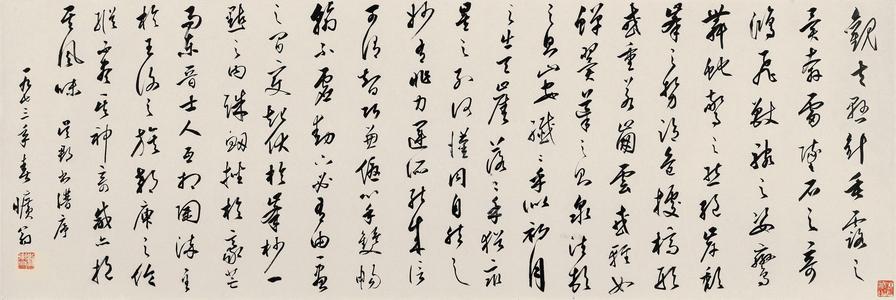 觀夫懸針垂露之
異奔雷墜石之奇
鴻飛獸駭之姿鸞
舞蛇驚之態絕岸頹
峯之勢臨危據槁形
或重若崩雲或輕如
蟬翼導之則泉注頓
之則山安纖纖乎似初月
之出天崖落落乎猶眾
星之列河漢同自然之
妙有非力運之能成信
可謂智巧兼優心手雙暢
翰不虛動下必有由一畫
之間變起伏於峯杪一
點之內殊衄挫於毫芒
而東晉士人互相陶淬至
於王謝之族郗庾之倫
縱不盡其神奇咸亦挹
其風味 吳郡書譜序
一九七三年春 曠翁